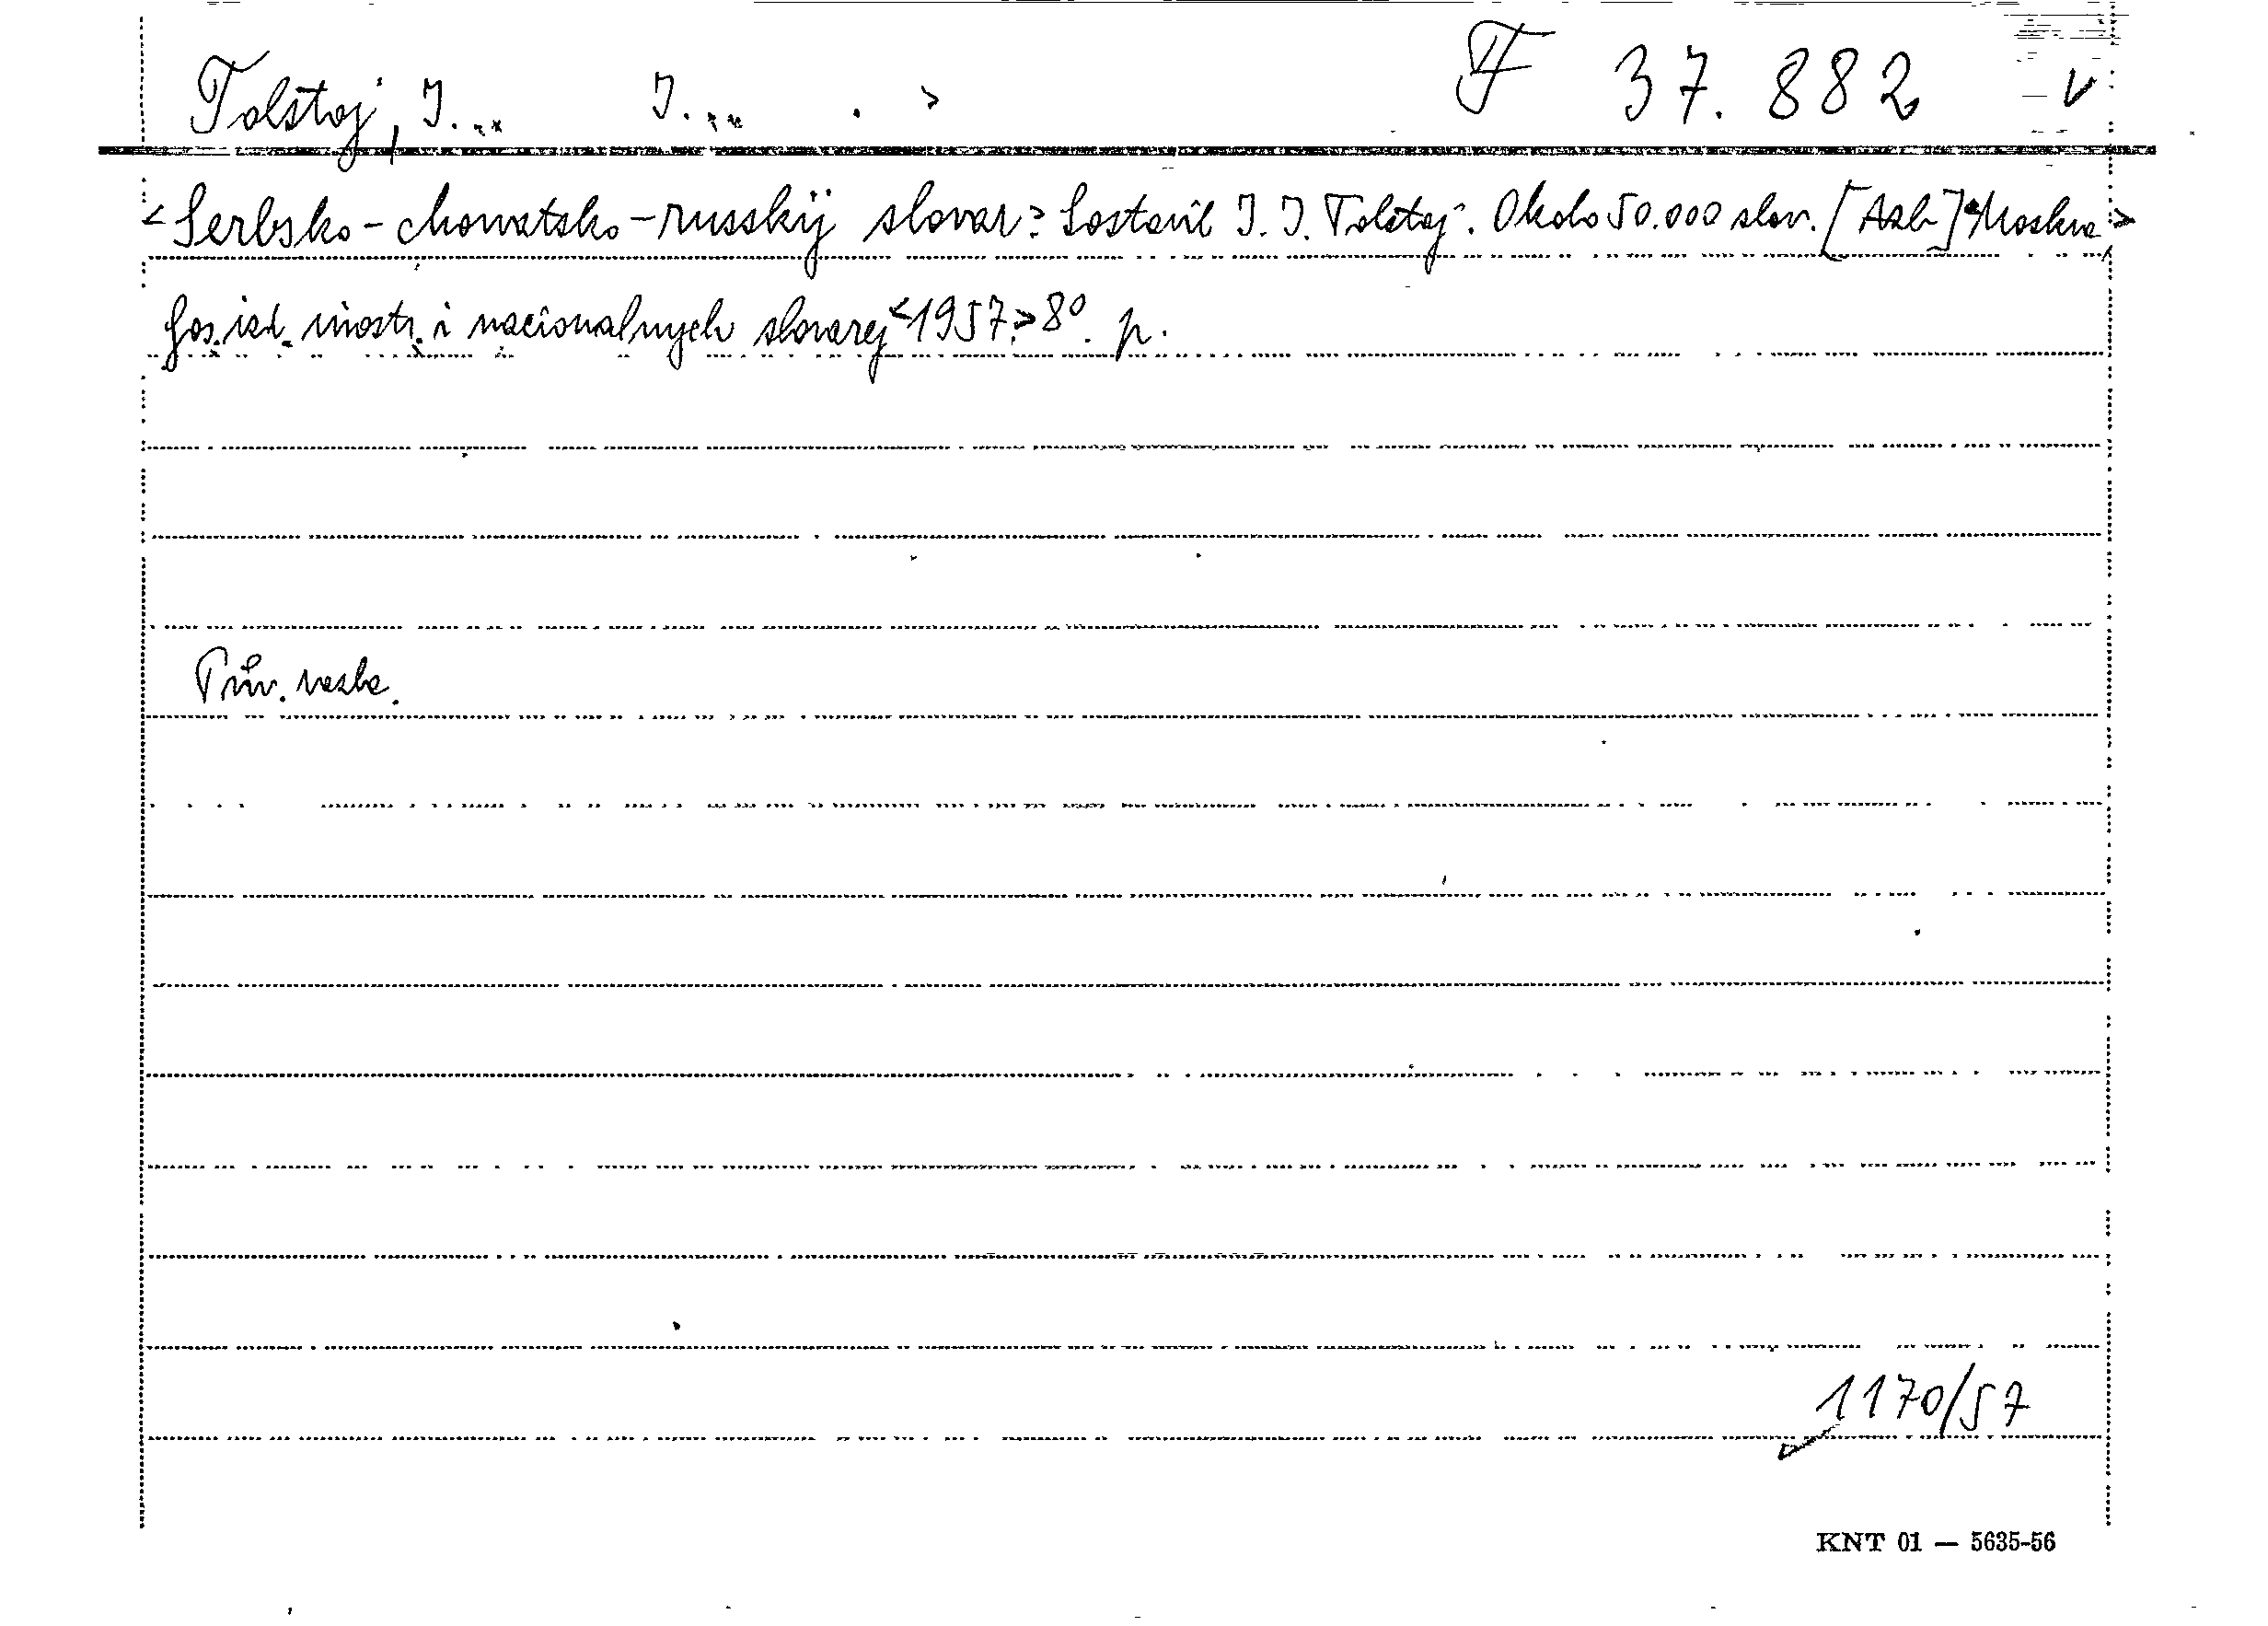 Tolstoj, I... I... . > F 37.882 v
<Serbsko-chorvatsko-russkij slovar> Sostavil I. I. Tolstoj. Okolo 50.000 slov. [Azb] <Moskva>
Gos. izd. inostr. i nacionalnych slovarej <1957.> 8°. p.
Pův. vazba.
1170/57
KNT 01 — 5635-56